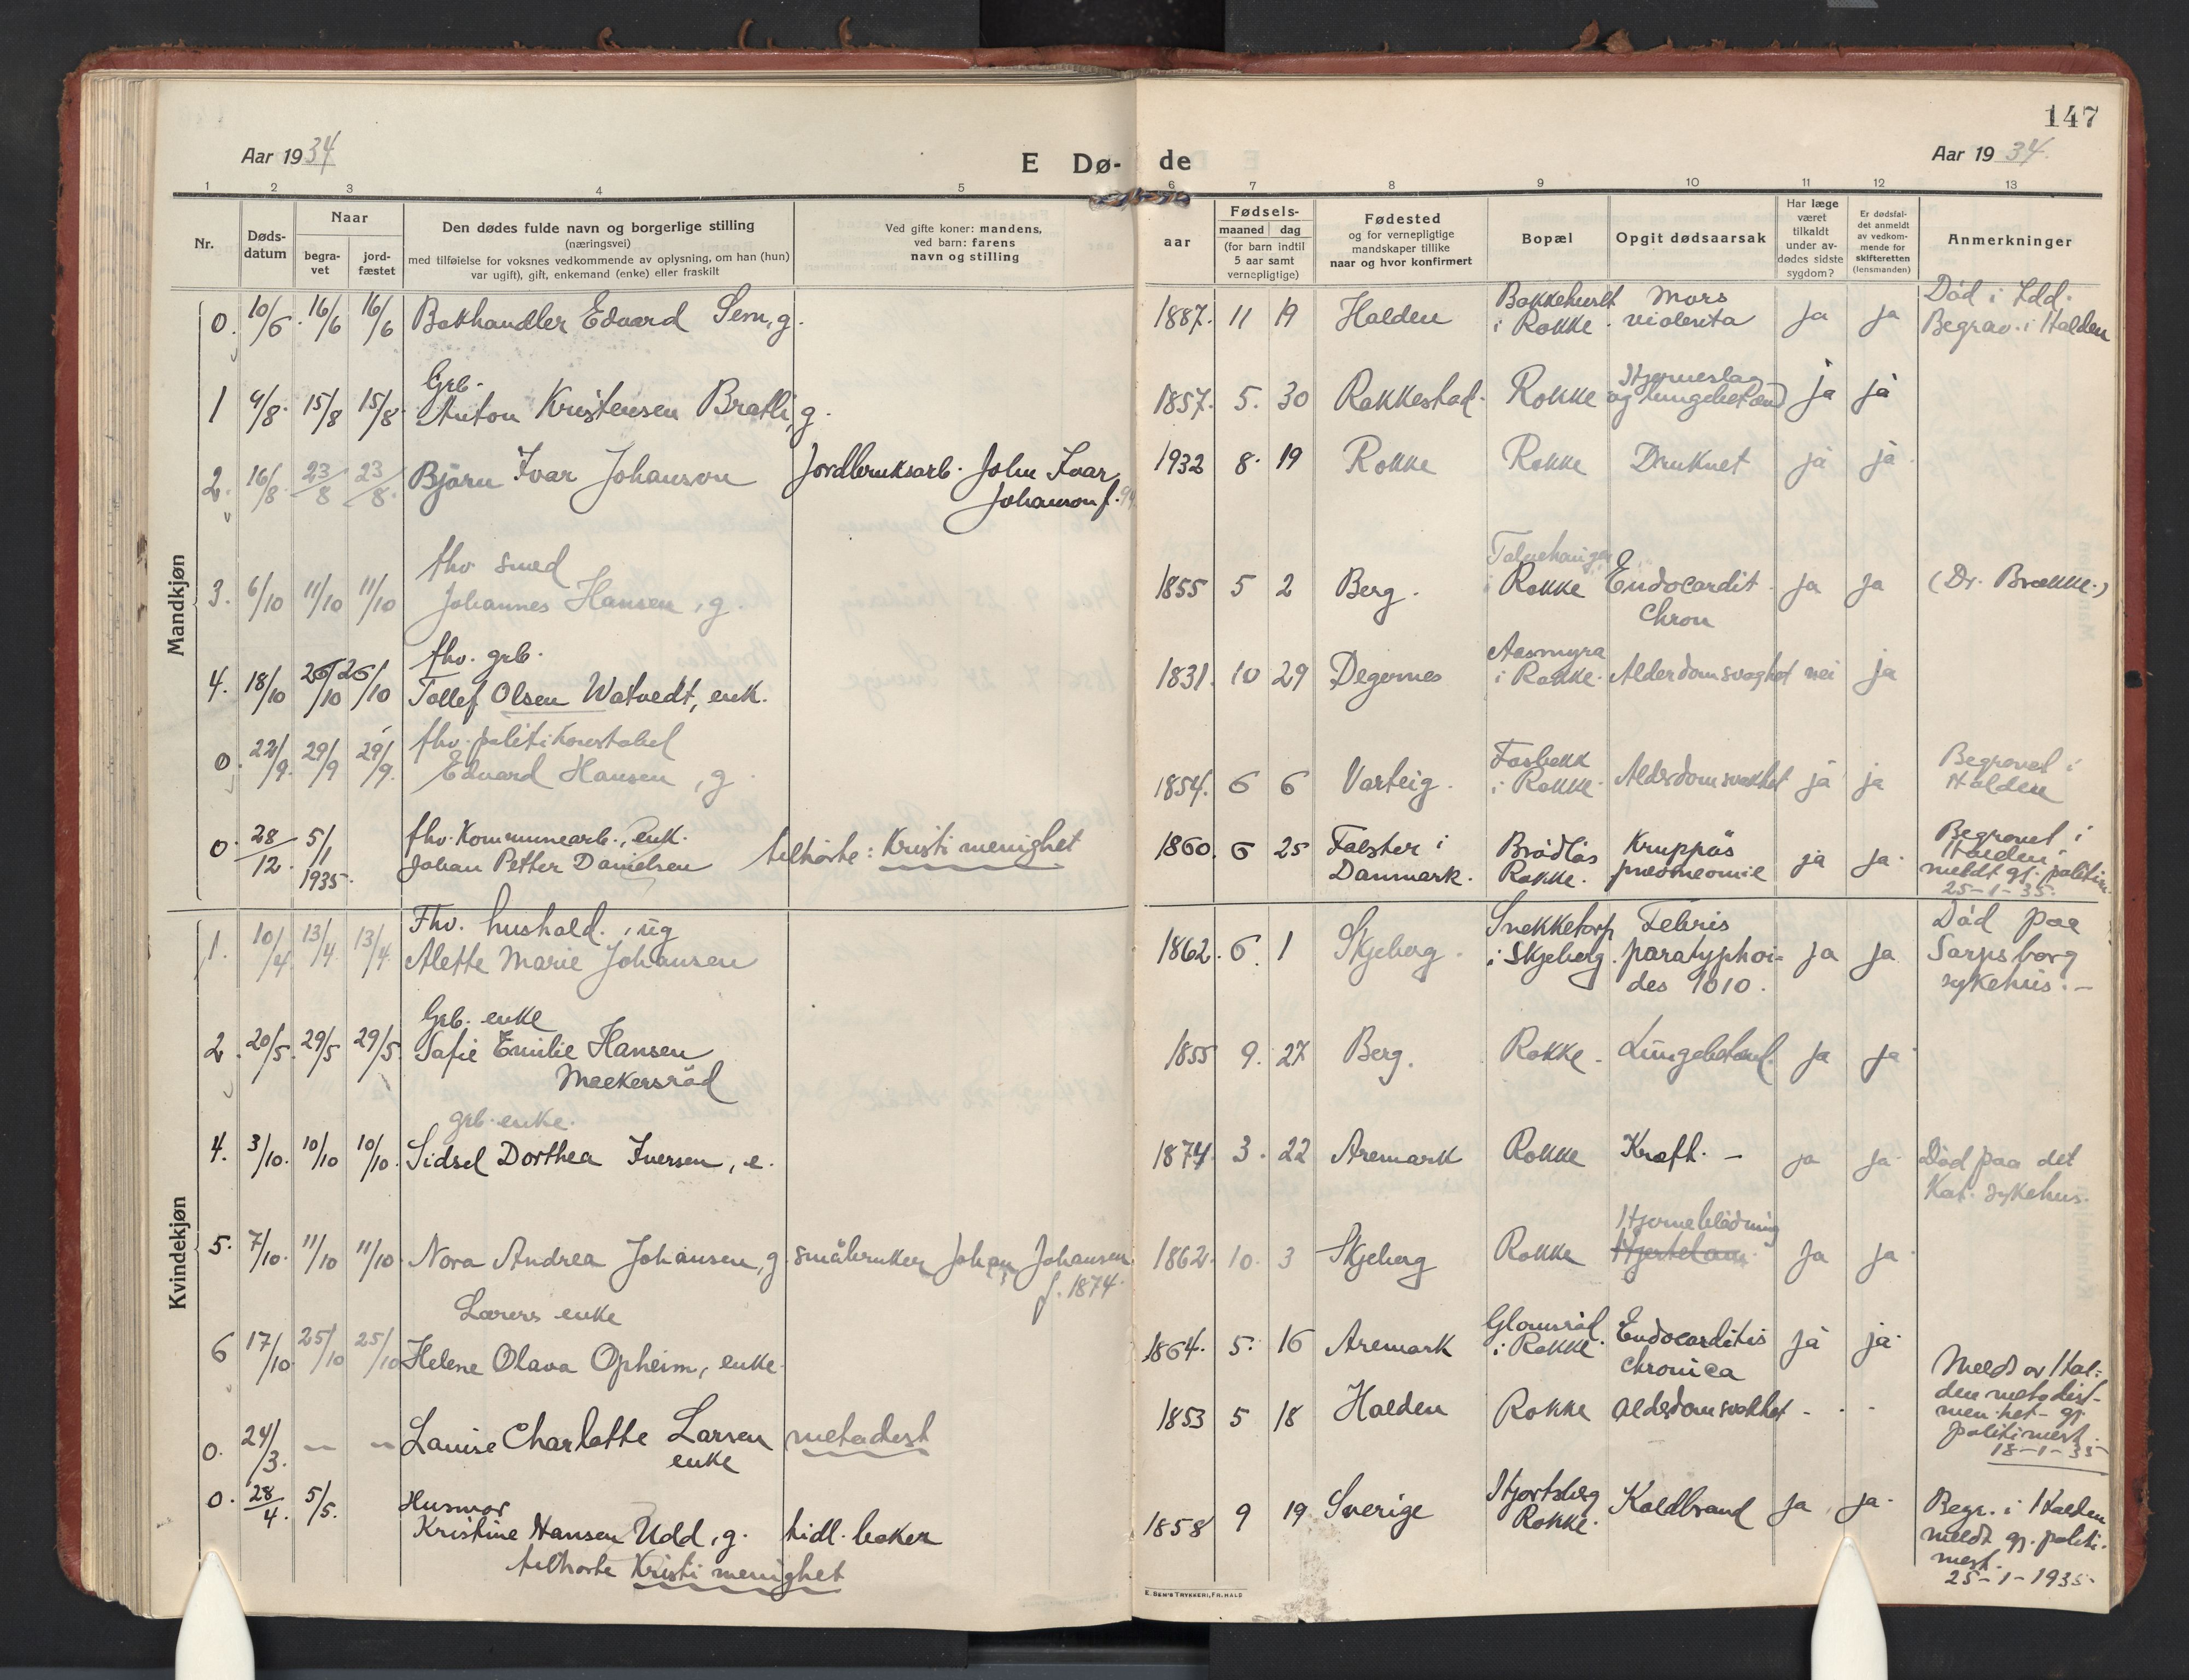 147
Aar 1934
E Dø-
de
Aar 1934.
1 2 3 4 5 6 7 8 9 10 11 12 13
Nr.
Døds-
datum
Naar
begra-
vet
jord-
fæstet
Den dødes fulde navn og borgerlige stilling
(næringsvei)
med tilføielse for voksnes vedkommende av oplysning, om han (hun)
var ugift), gift, enkemand (enke) eller fraskilt
Ved gifte koner: mandens,
ved barn: farens
navn og stilling
aar
Fødsels-
maaned dag
(for barn indtil
5 aar samt
vernepligtige)
Fødested
og for vernepligtige
mandskaper tillike
naar og hvor konfirmert
Bopæl
Opgit dødsaarsak
Har læge
været
tilkaldt
under av-
dødes sidste
sygdom?
Er dødsfal-
det anmeldt
av vedkom-
mende for
skifteretten
(lensmanden)
Anmerkninger
Mandkjøn
0. 10/6 16/6 16/6 Bokhandler Edvard Sem, g. 1887. 11 19 Halden Bakkehurst i Rokke Mors violenta ja ja Död i Idd. Begrav. i Halden
Grb.
1 9/8. 15/8 15/8 Anton Kristensen Bratli, g. 1857. 5. 30 Rakkestad. Rokke Hjerneslag og lungebetænd ja ja
2. 16/8 23/8 23/8. Björn Ivar Johanson Jordbruksarb. John Ivar Johanson f. 94 1932 8. 19 Rokke Rokke Druknet ja ja
fhv. smed
3. 6/10 11/10 11/10 Johannes Hansen, g. 1855 5 2 Berg. i Rokke Endocardit chron ja ja (Dr. Brække.)
fhv. grb.
4. 18/10 26/10 26/10 Tollef Olsen Watvedt, enk. 1831. 10 29 Degernes Aasmyra i Rokke. Alderdomsvaghet nei ja
fhv. politikonstabel
0. 22/9. 29/9 29/9. Edvard Hansen, g. 1854. 6 6 Varteig. Fosbekk i Rokke. Alderdomsvakhet ja ja Begravet i Halden
fhv. Kommunearb., enk.
0. 28/12. 5/1 1935. Johan Petter Danielsen tilhörte: Kristi menighet 1860. 6 25 Falster i Danmark. Brödlös Rokke. Kruppös pneomeomie ja ja. Begravet i Halden. meldt gj. politim. 25-1-35.
Kvindekjøn
Fhv. hushold., ug
1. 10/4 13/4. 13/4. Alette Marie Johansen 1862. 6. 1 Skjeberg. Snekketorp i Skjeberg. Febris paratyphoi- des 1010. ja ja Död paa Sarpsborg sykehus. -
Grb. enke
2. 20/5. 29/5 29/5. Sofie Emilie Hansen 1855 9. 27 Berg. Rokke. Lungebetænd. ja ja
Mækersröd
grb. enke.
4. 3/10. 10/10 10/10. Sidsel Dorthea Iversen, e. 1874. 3. 22 Aremark Rokke Kræft. - ja ja Död paa det Kat. sykehus.
5. 7/10. 11/10 11/10. Nora Andrea Johansen, g. småbruker Johan Johansen f. 1874. 1862. 10. 3 Skjeberg Rokke Hjerneblödning ja ja.
Lærers enke
6 17/10. 25/10 25/10 Helene Olava Opheim, enke. 1864. 5. 16 Aremark Glomsröd i Rokke. Endocarditis chronica ja ja
0. 24/3. - - Lauise Charlotte Larsen enke metodist 1853 5 18 Halden Rokke Alderdomsvakhet - - - Meldt av Hal- den metodist- men.het - gj. politimest. 18-1-35
Husmor
0. 28/4. 5/5. Kristine Hansen Udd, g. tidl. baker 1858 9 19 Sverige Hjortsberg Rokke. Koldbrand ja ja. Begr. i Halden meldt gj. politi- mest. 25-1-1935
tilhörte Kristi menighet
E. SEM'S TRYKKERI, FR.HALD